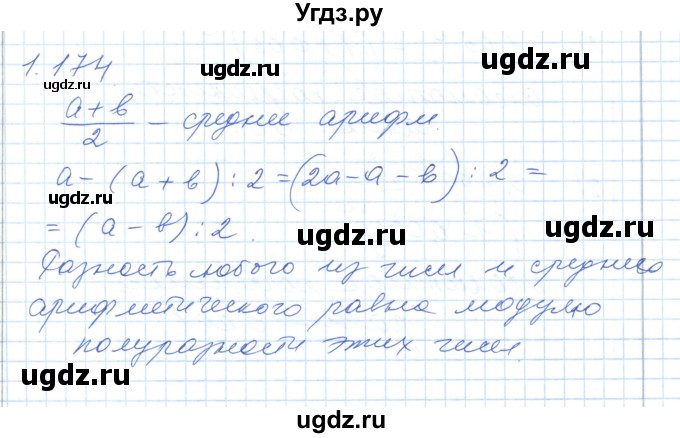 Угдз.ру
1.174.
ugdz.ru ugdz.ru
a+b
2
– средни арифм.
ugdz.ru
a – (a + b) : 2 = (2a – a – b) : 2 =
ugdz.ru
= (a – b) : 2.
ugdz.ru ugdz.ru
Разность любого из чисел и среднего
арифметического равна модулю
ugdz.ru
полуразности этих чисел.
ugdz.ru
ugdz.ru